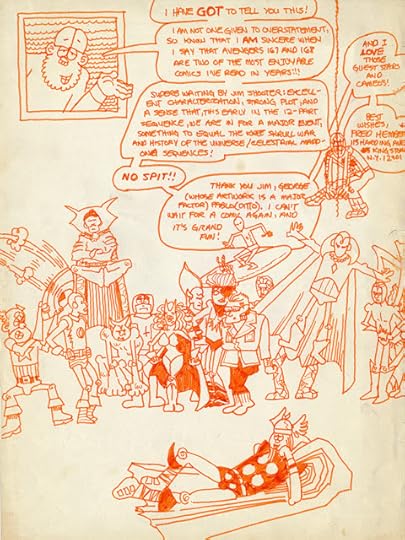 I HAVE GOT TO TELL YOU THIS!
I AM NOT ONE GIVEN TO OVERSTATEMENT,
SO KNOW THAT I AM SINCERE WHEN
I SAY THAT AVENGERS 167 AND 168
ARE TWO OF THE MOST ENJOYABLE
COMICS I'VE READ IN YEARS!!
SUPERB WRITING BY JIM SHOOTER: EXCELL-
ENT CHARACTERIZATION, STRONG PLOT, AND
A SENSE THAT, THIS EARLY IN THE 12-PART
SEQUENCE, WE ARE IN FOR A MAJOR EVENT,
SOMETHING TO EQUAL THE KREE SKRULL WAR
AND HISTORY OF THE UNIVERSE/CELESTIAL MADD-
ONNA SEQUENCES!
NO SPIT!!
THANK YOU JIM, GEORGE
(WHOSE ARTWORK IS A MAJOR
FACTOR) PABLO(OTTO). I CAN'T
WAIT FOR A COMIC AGAIN, AND
IT'S GRAND
FUN!
AND I
LOVE
THOSE
GUEST STARS
AND
CAMEOS!
BEST
WISHES,
FRED HEMBECK
KINGSTON
N.Y. 12401